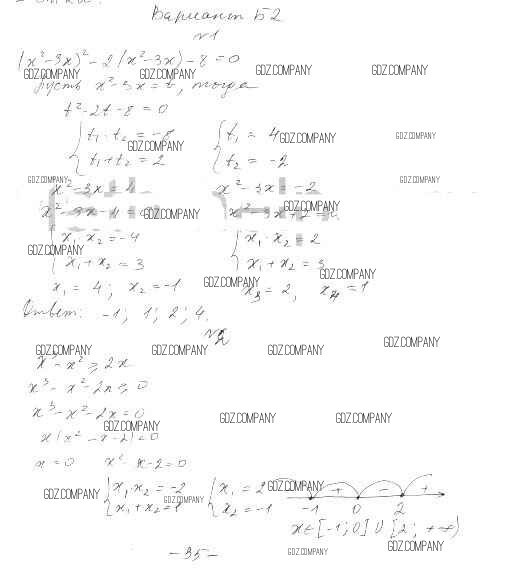 Вариант Б2
№1
(x²-3x)²-2(x²-3x)-8=0
GDZ.COMPANY GDZ.COMPANY GDZ.COMPANY GDZ.COMPANY
Пусть x²-3x=t, тогда
t²-2t-8=0
{t₁·t₂=-8 {t₁=4 GDZ.COMPANY GDZ.COMPANY
GDZ.COMPANY
t₁+t₂=2 t₂=-2
GDZ.COMPANY GDZ.COMPANY
x²-3x=4 x²-3x=-2
x²-3x-4=0 GDZ.COMPANY x²-3x+2=0 GDZ.COMPANY
{x₁·x₂=-4 {x₁·x₂=2
GDZ.COMPANY
x₁+x₂=3 x₁+x₂=3
GDZ.COMPANY GDZ.COMPANY
x₁=4; x₂=-1 x₃=2, x₄=1
Ответ: -1; 1; 2; 4.
№2
GDZ.COMPANY GDZ.COMPANY GDZ.COMPANY GDZ.COMPANY
x³-x²≥2x
x³-x²-2x≥0
x³-x²-2x=0
GDZ.COMPANY GDZ.COMPANY GDZ.COMPANY
x(x²-x-2)=0
x=0 x²-x-2=0
GDZ.COMPANY {x₁·x₂=-2 GDZ.COMPANY {x₁=2 GDZ.COMPANY - + - +
x₁+x₂=1 x₂=-1 -1 0 2
x∈[-1;0]∪[2;+∞)
-35- GDZ.COMPANY GDZ.COMPANY